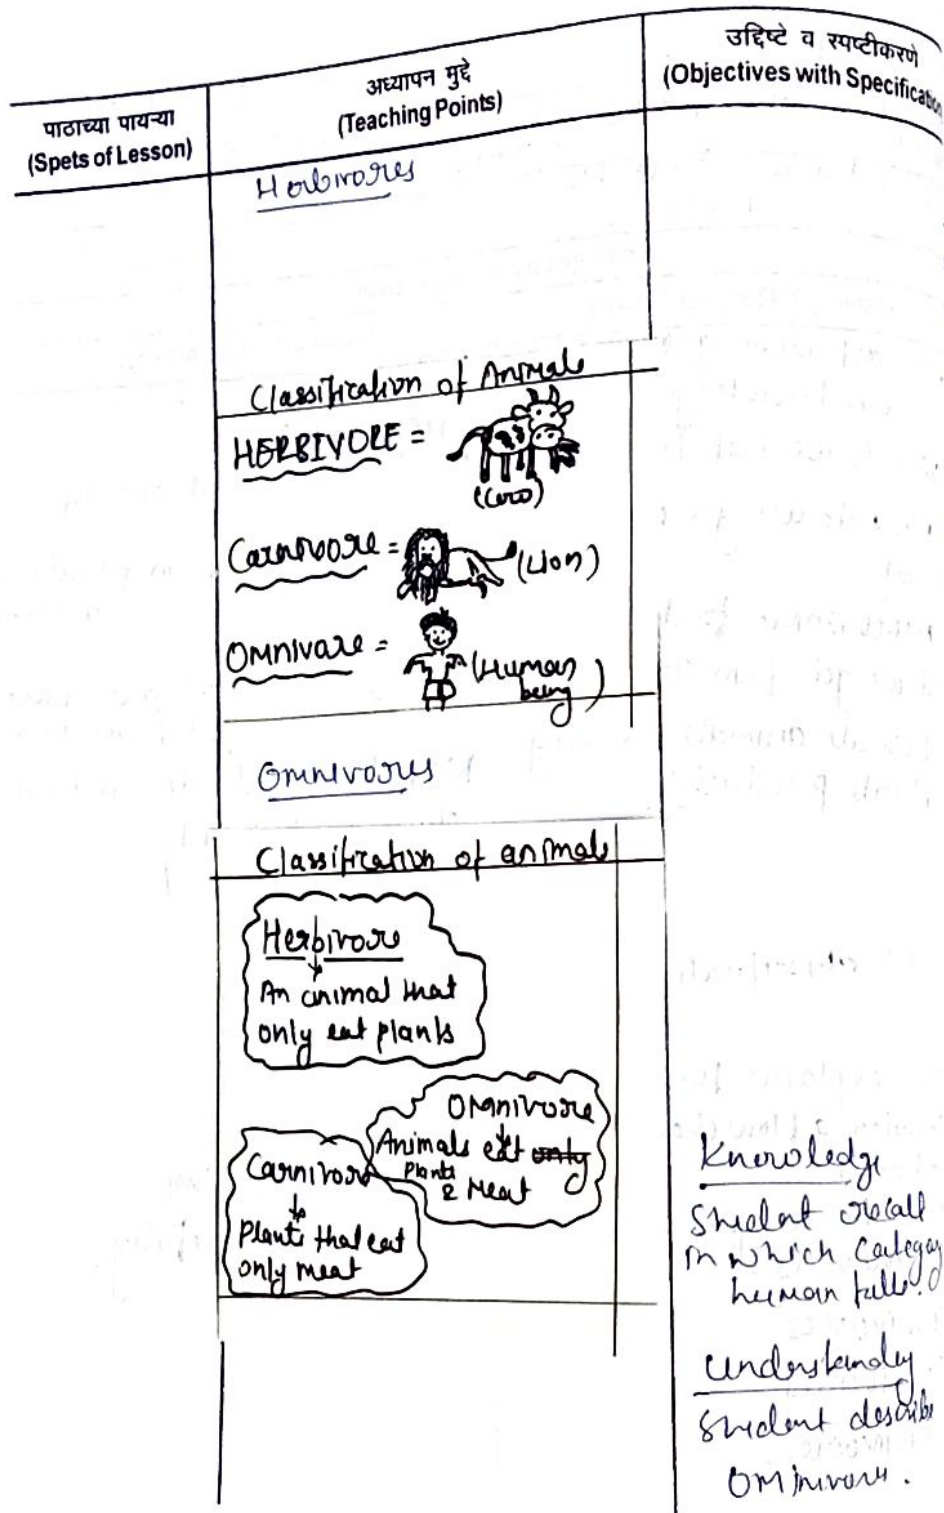 पाठाच्या पायऱ्या
(Spets of Lesson)
अध्यापन मुद्दे
(Teaching Points)
उद्दिष्टे व स्पष्टीकरणे
(Objectives with Specificatio
Herbivores
Classification of Animals
HERBIVORE =
(Cow)
Carnivore =
(Lion)
Omnivare =
(Human
being)
Omnivores
Classification of animals
Herbivore
An animal that
only eat plants
Omnivore
Animals eat only
Plants
& Meat
Carnivore
Plants that eat
only meat
Knowledge
Student recall
in which Category
human falls.
Understanding
Student describe
Omnivore.